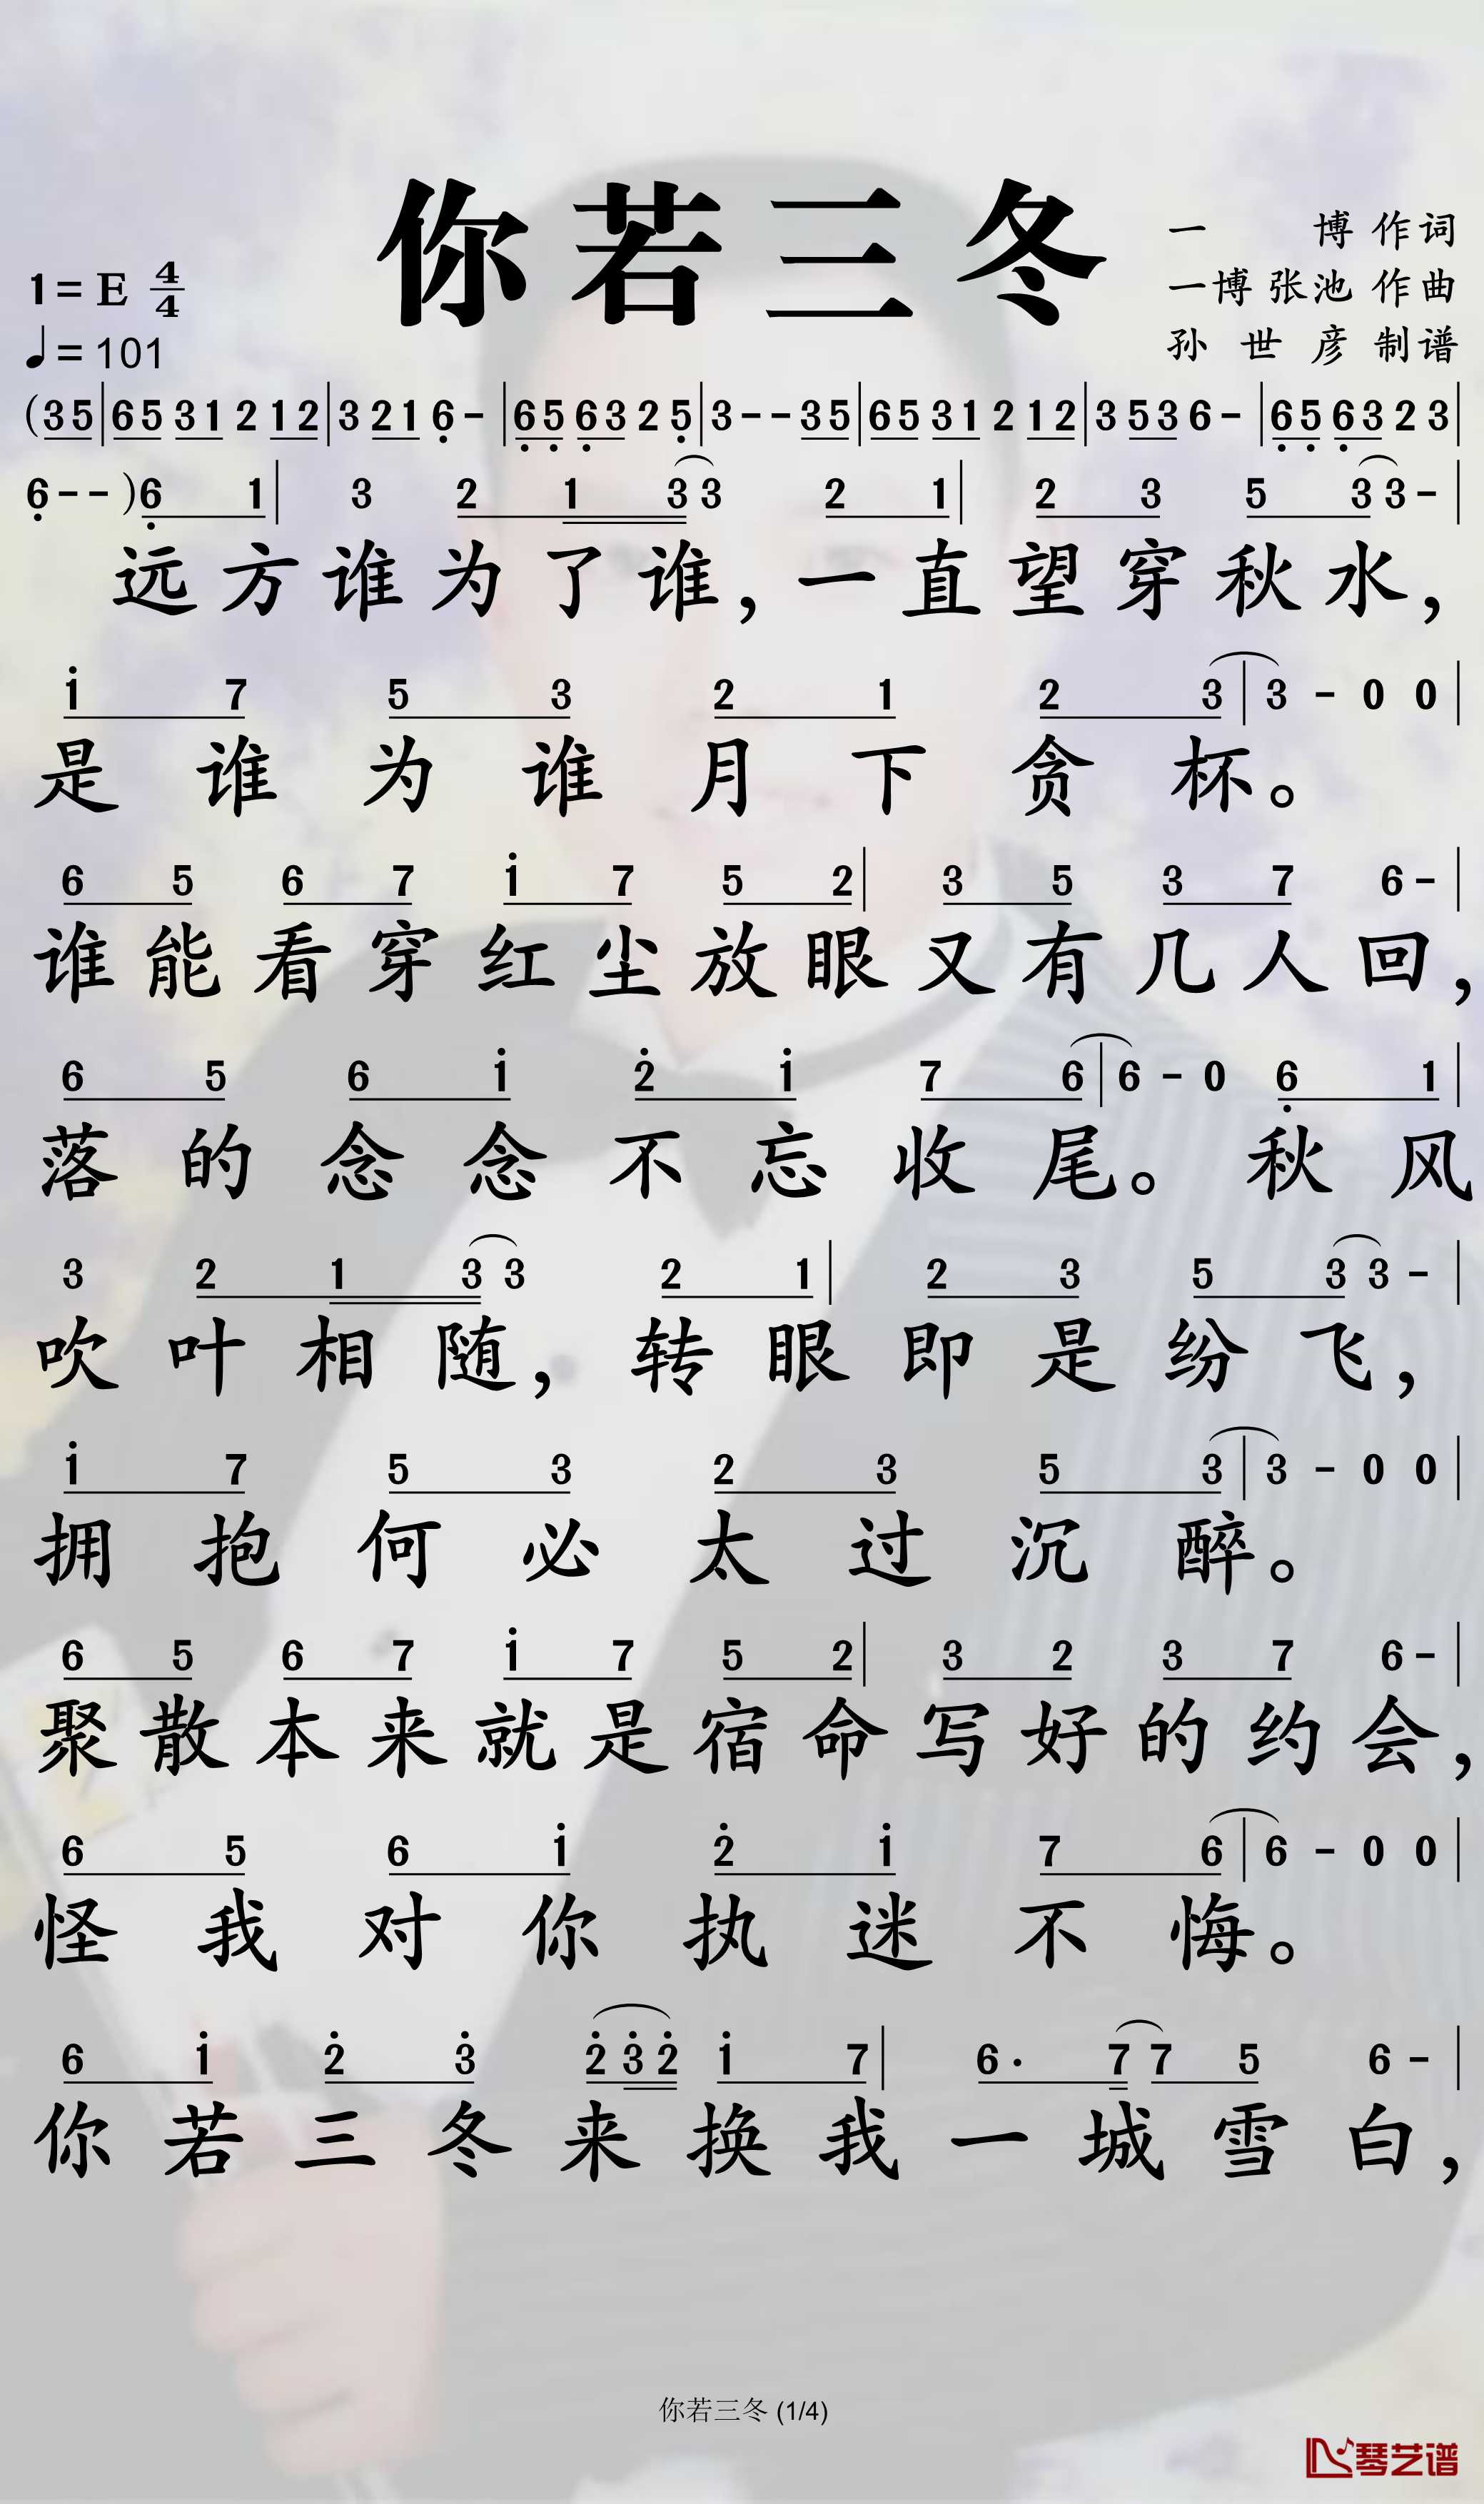 你若三冬
一 博 作词
一博 张池 作曲
孙 世 彦 制谱
1=E 4/4
♩=101
(35|65 31 2 12|3 21 6-|65 63 2 5|3--35|65 31 2 12|3 53 6-|65 63 2 3|
6--)6 1|3 2 1 3 3 2 1|2 3 5 3 3-|
远方谁为了谁，一直望穿秋水，
1 7 5 3 2 1 2 3|3 - 0 0|
是谁为谁月下贪杯。
6 5 6 7 1 7 5 2|3 5 3 7 6-|
谁能看穿红尘放眼又有几人回，
6 5 6 1 2 1 7 6|6 - 0 6 1|
落的念念不忘收尾。秋风
3 2 1 3 3 2 1|2 3 5 3 3-|
吹叶相随，转眼即是纷飞，
1 7 5 3 2 3 5 3|3 - 0 0|
拥抱何必太过沉醉。
6 5 6 7 1 7 5 2|3 2 3 7 6-|
聚散本来就是宿命写好的约会，
6 5 6 1 2 1 7 6|6 - 0 0|
怪我对你执迷不悔。
6 1 2 3 2 3 2 1 7|6. 7 7 5 6-|
你若三冬来换我一城雪白，
你若三冬 (1/4)
琴艺谱